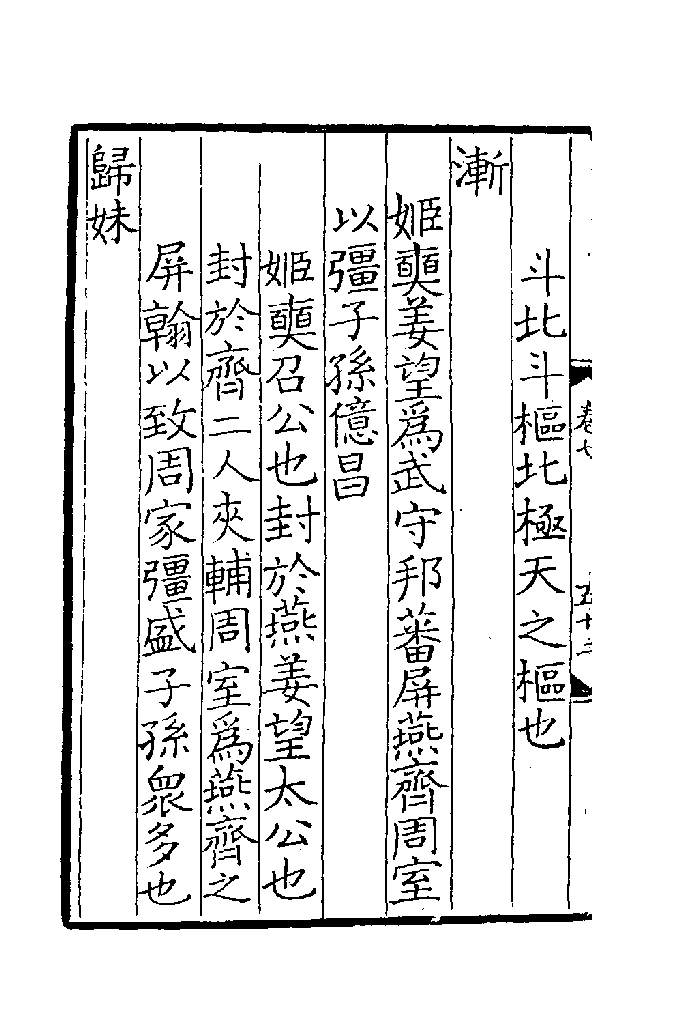 斗北斗樞北極天之樞也
漸
姬奭姜望爲武守邦蕃屏燕齊周室
以彊子孫億昌
姬奭召公也封於燕姜望太公也
封於齊二人夾輔周室爲燕齊之
屏翰以致周家彊盛子孫衆多也
歸妹
卷七